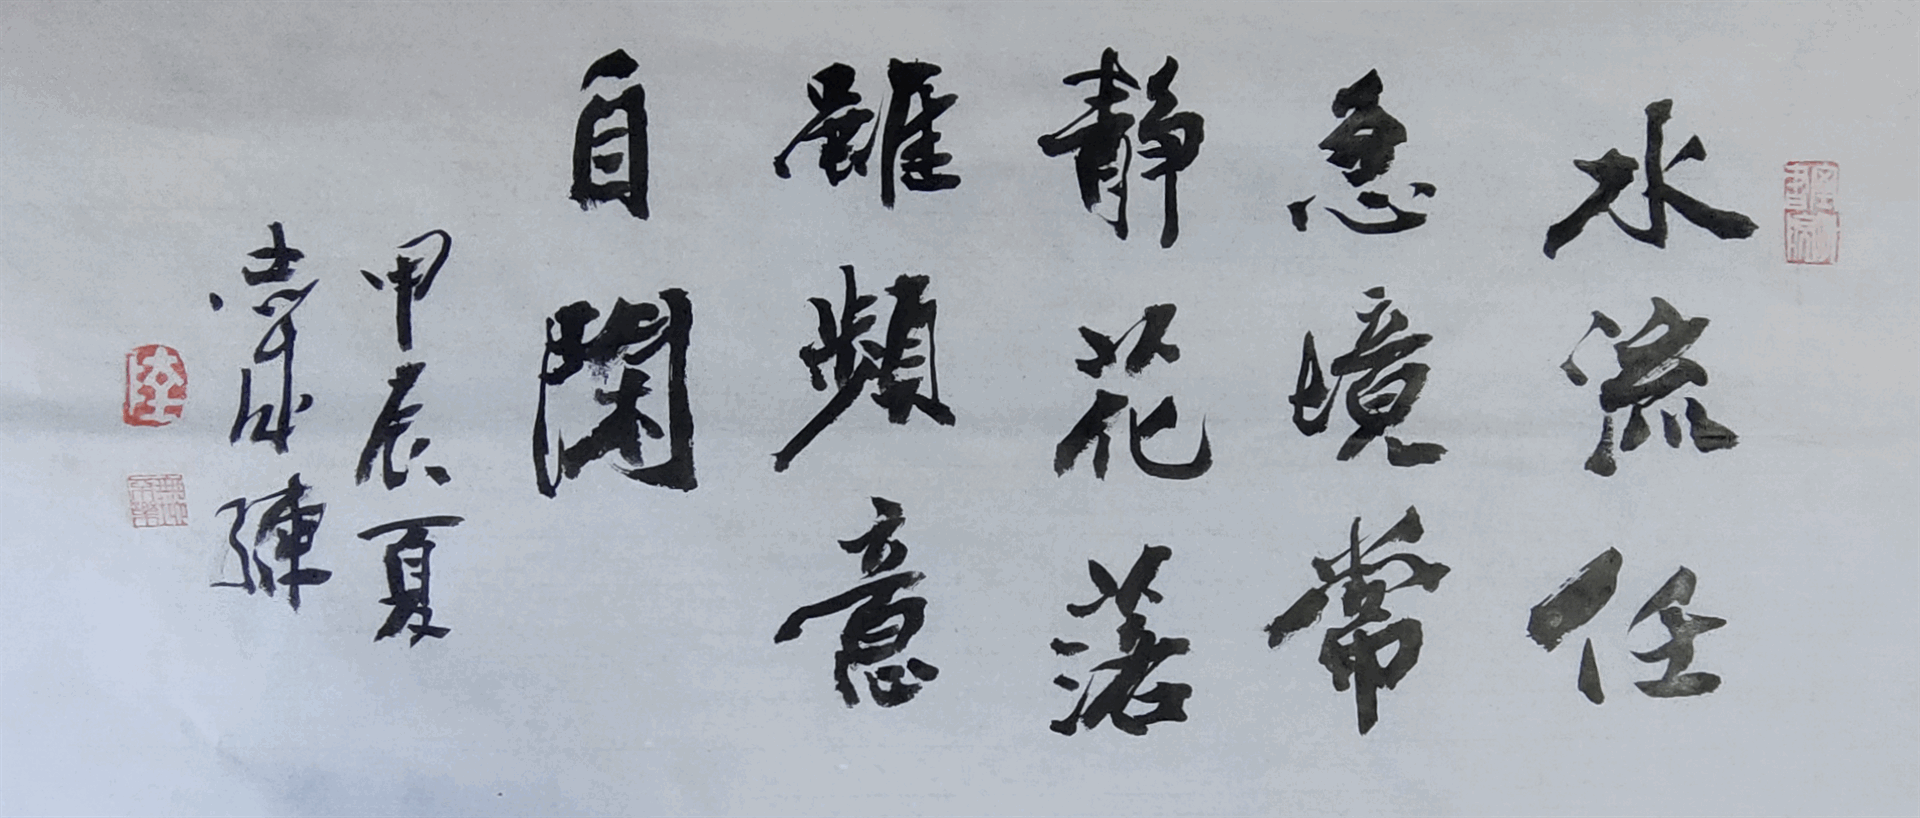 水流任
急境常
静花落
雖頻意
自閑
甲辰夏
志成陳